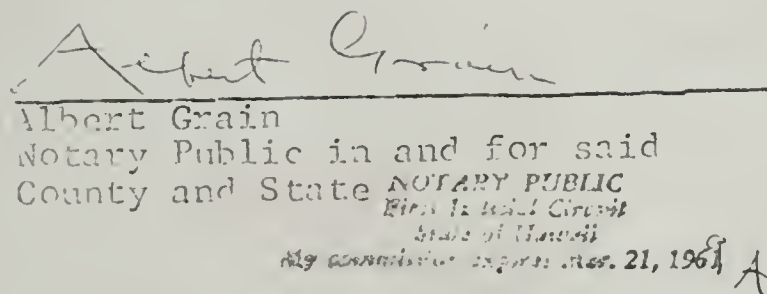 Albert Grain
Albert Grain
Notary Public in and for said
County and State NOTARY PUBLIC
First Judicial Circuit
State of Hawaii
My commission expires Mar. 21, 196
A